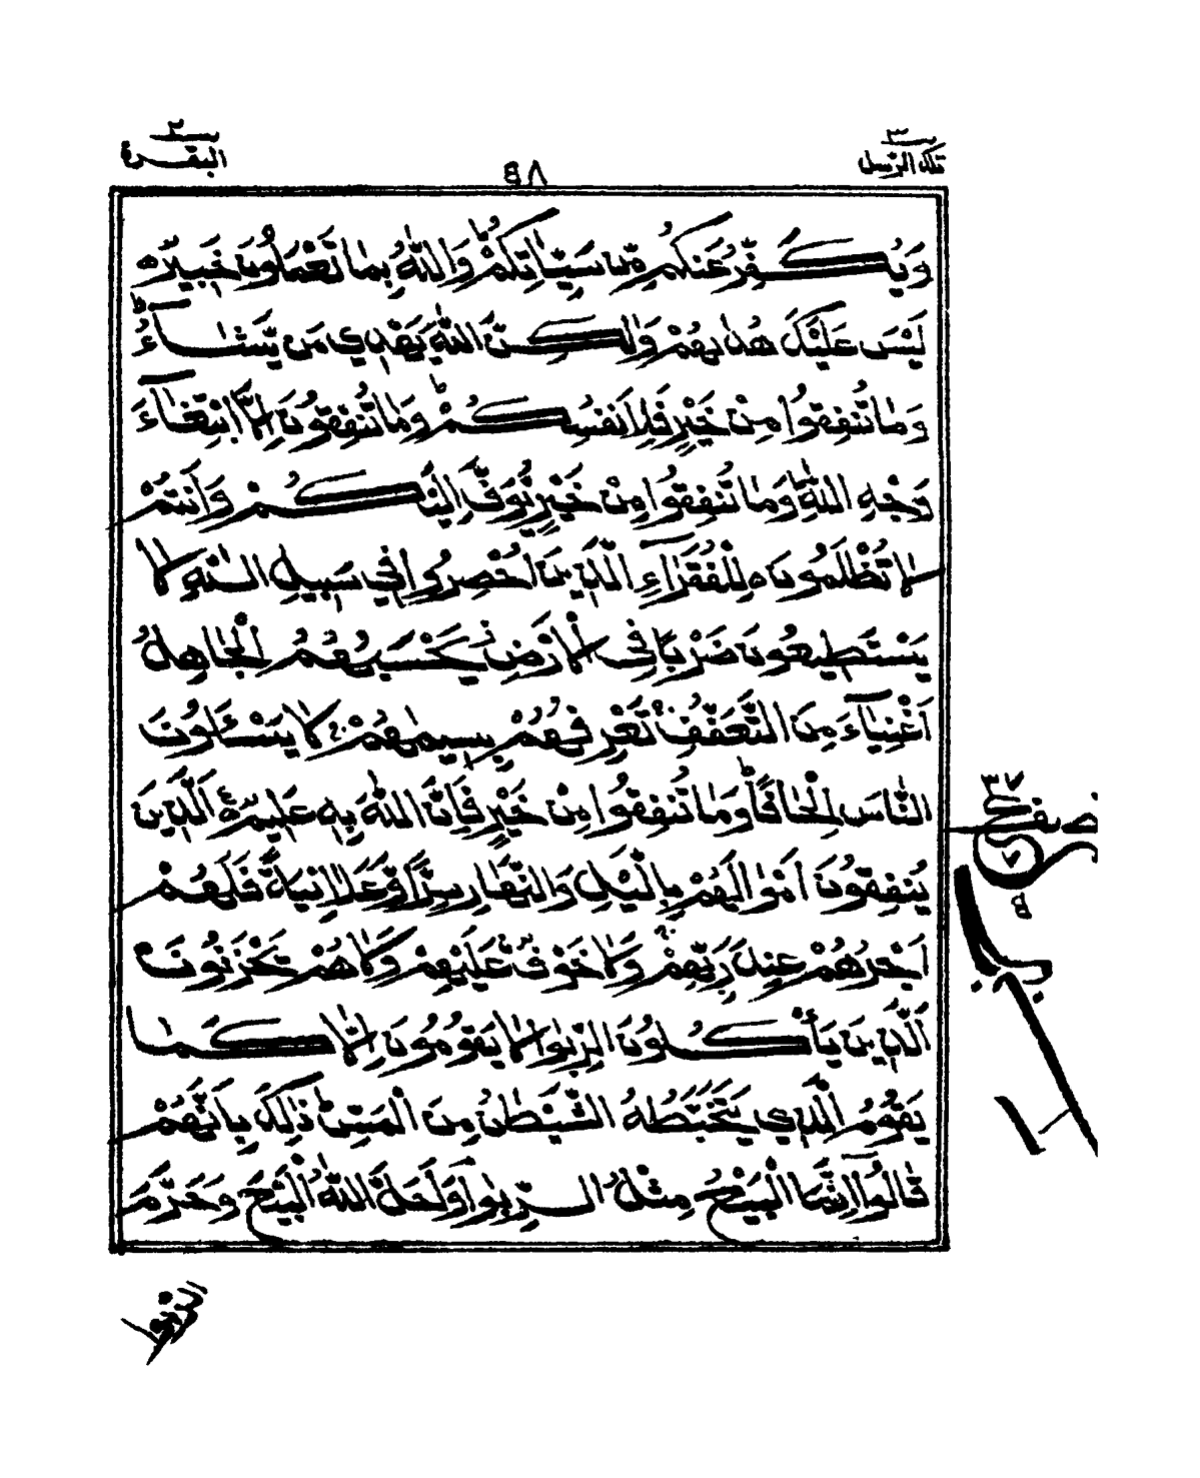 تلك الرسل ٣
٤٨
البقرة ٢
وَيُكَفِّرُ عَنكُم مِّن سَيِّاٰتِكُمْ ؕ وَاللّٰهُ بِمَا تَعْمَلُونَ خَبِيرٌ ه
لَيْسَ عَلَيْكَ هُدٰىهُمْ وَلٰكِنَّ اللّٰهَ يَهْدِي مَن يَّشَآءُ ؕ
وَمَا تُنفِقُوا مِنْ خَيْرٍ فَلِاَنفُسِكُمْ ؕ وَمَا تُنفِقُونَ اِلَّا ابْتِغَآءَ
وَجْهِ اللّٰهِ ؕ وَمَا تُنفِقُوا مِنْ خَيْرٍ يُّوَفَّ اِلَيْكُمْ وَاَنتُمْ
لَا تُظْلَمُونَ ه لِلْفُقَرَآءِ الَّذِينَ اُحْصِرُوا فِي سَبِيلِ اللّٰهِ لَا
يَسْتَطِيعُونَ ضَرْبًا فِي الْاَرْضِ ز يَحْسَبُهُمُ الْجَاهِلُ
اَغْنِيَآءَ مِنَ التَّعَفُّفِ ۚ تَعْرِفُهُمْ بِسِيمٰهُمْ ۚ لَا يَسْـَٔلُونَ
النَّاسَ اِلْحَافًا ؕ وَمَا تُنفِقُوا مِنْ خَيْرٍ فَاِنَّ اللّٰهَ بِهٖ عَلِيمٌ ه اَلَّذِينَ
يُنفِقُونَ اَمْوَالَهُمْ بِالَّيْلِ وَالنَّهَارِ سِرًّا وَّعَلَانِيَةً فَلَهُمْ
اَجْرُهُمْ عِندَ رَبِّهِمْ ۚ وَلَا خَوْفٌ عَلَيْهِمْ وَلَا هُمْ يَحْزَنُونَ ه
اَلَّذِينَ يَأْكُلُونَ الرِّبٰوا لَا يَقُومُونَ اِلَّا كَمَا
يَقُومُ الَّذِي يَتَخَبَّطُهُ الشَّيْطٰنُ مِنَ الْمَسِّ ؕ ذٰلِكَ بِاَنَّهُمْ
قَالُوٓا اِنَّمَا الْبَيْعُ مِثْلُ الرِّبٰوا ۘ وَاَحَلَّ اللّٰهُ الْبَيْعَ وَحَرَّمَ
الرِّبٰوا